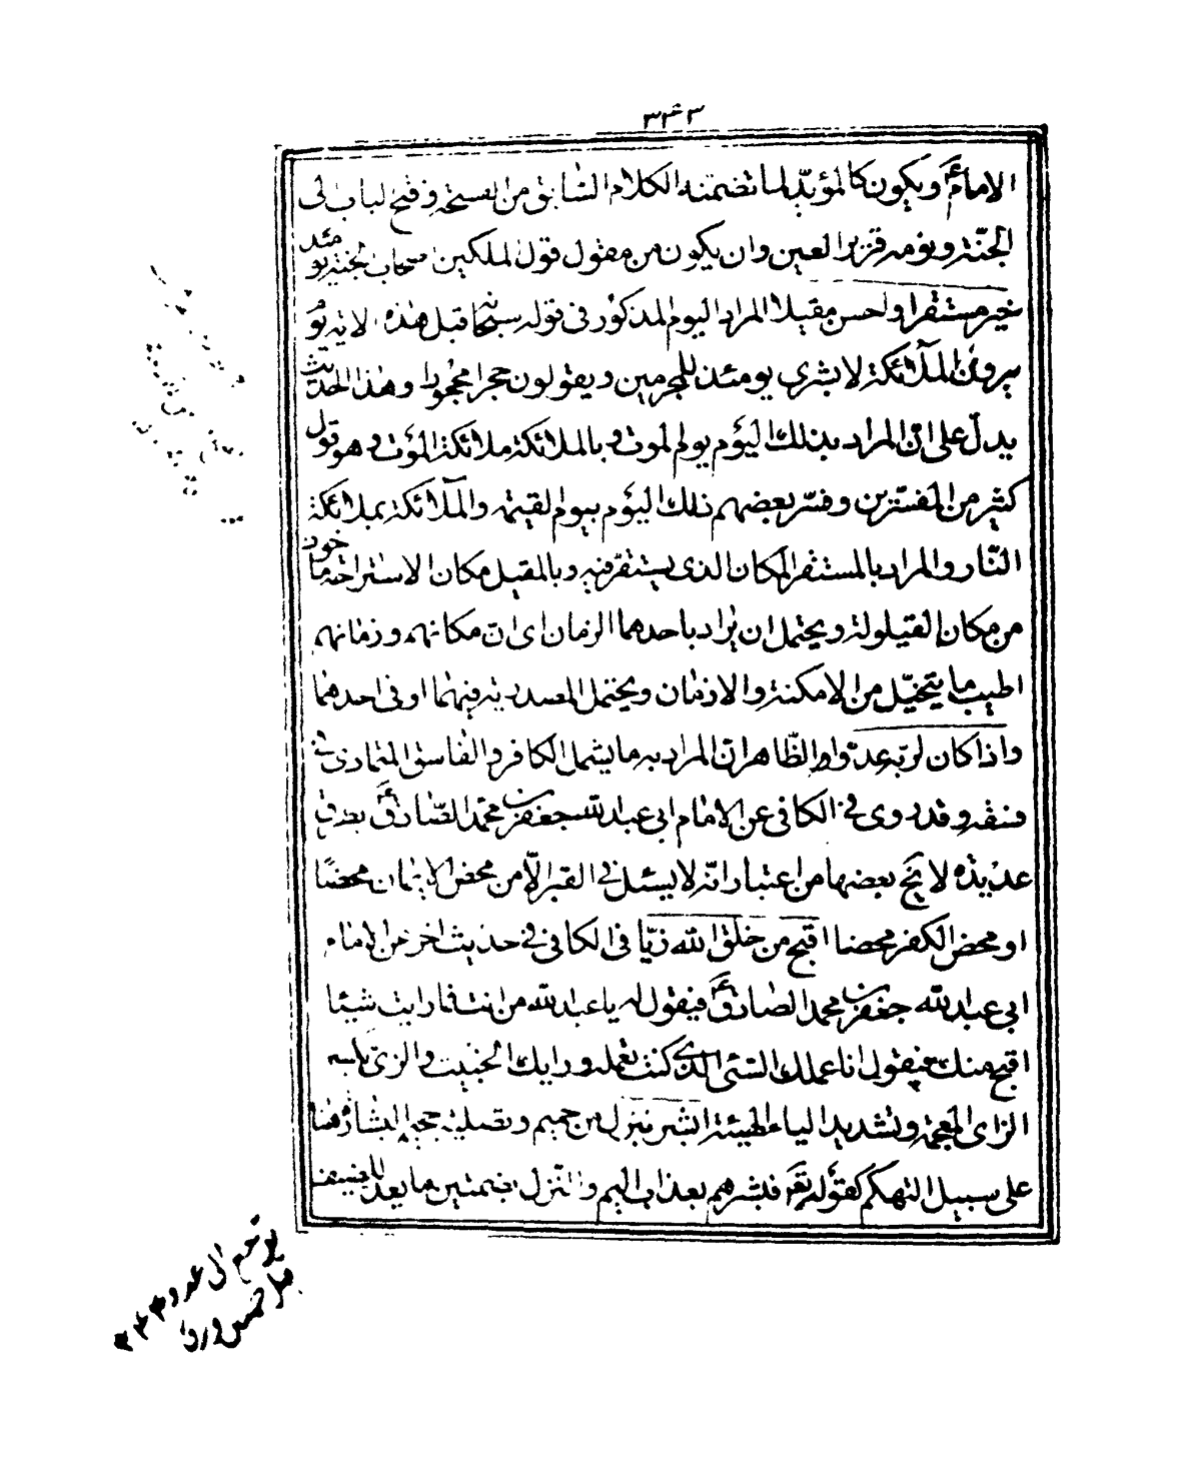 ٣٣٣
الامام ع ويكون كالمؤيد لما تضمنه الكلام السابق من الفسحة وفتح الباب الى
الجنة ونومه قرير العين وان يكون من مقول قول الملكين اصحاب الجنة يومئذ
خير مستقرا واحسن مقيلا المراد اليوم المذكور في قوله سبحانه قبل هذه الاية يوم
يرون الملائكة لا بشرى يومئذ للمجرمين ويقولون حجرا محجورا وهذا الحديث
يدل على ان المراد بذلك اليوم يوم الموت وبالملائكة ملائكة الموت وهو قول
كثير من المفسرين وفسر بعضهم ذلك اليوم بيوم القيمة والملائكة بملائكة
النار والمراد بالمستقر المكان الذى يستقر فيه وبالمقيل مكان الاستراحة ماخوذ
من مكان القيلولة ويحتمل ان يراد باحدهما الزمان اى ان مكانهم وزمانهم
اطيب ما يتخيل من الامكنة والازمان ويحتمل المصدرية فيهما او فى احدهما
واذا كان لربه عدوا الظاهر ان المراد به ما يشمل الكافر والفاسق المتمادى فى
فسقه وقد روى فى الكافى عن الامام ابى عبد الله جعفر بن محمد الصادق ع بطرق
عديدة لا يخ بعضها من اعتبار انه لا يسئل فى القبر الا من محض الايمان محضا
او محض الكفر محضا اقبح من خلق الله زيا فى الكافى فى حديث اخر عن الامام
ابى عبد الله جعفر بن محمد الصادق ع فيقول له يا عبد الله من انت فما رايت شيئا
اقبح منك فيقول انا عملك السئ الذى كنت تعمله ورايك الخبيث والزى بكسر
الزاى المعجمة وتشديد الياء الهيئة ابشر بنزل من حميم وتصلية جحيم البشارة هنا
على سبيل التهكم كقوله تع فبشرهم بعذاب اليم والنزل بضمتين ما يعد للضيف